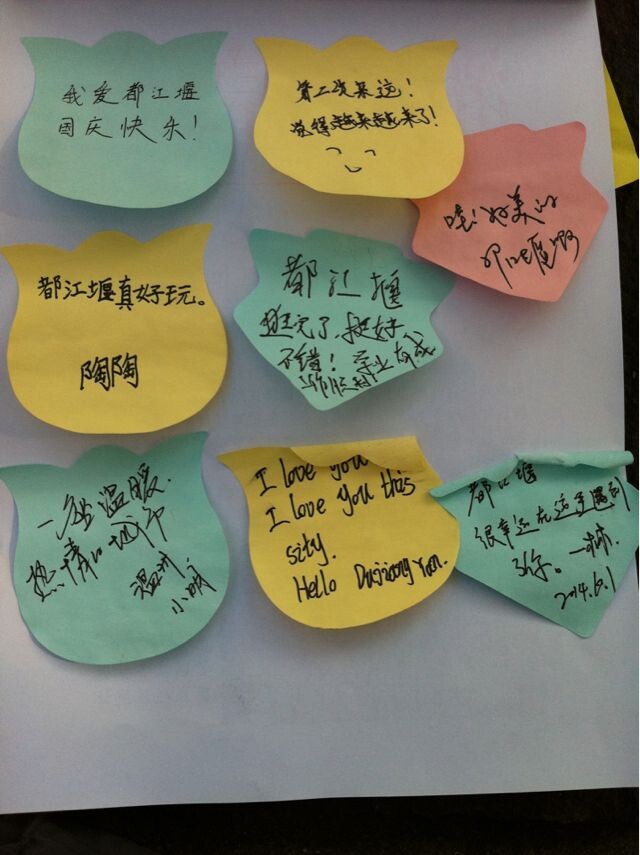 我爱都江堰
国庆快乐！
第二次来这！
觉得越来越来了！
哇！好美的
都江堰啊
都江堰真好玩。
陶陶
都江堰
逛完了，挺好
不错！学业有成
一座温暖、
热情的城市
温州，
小
I love you
I love you this
sity.
Hello Dujiang Yan.
都江堰
很幸运在这个季遇到
你。一林
2014.10.1